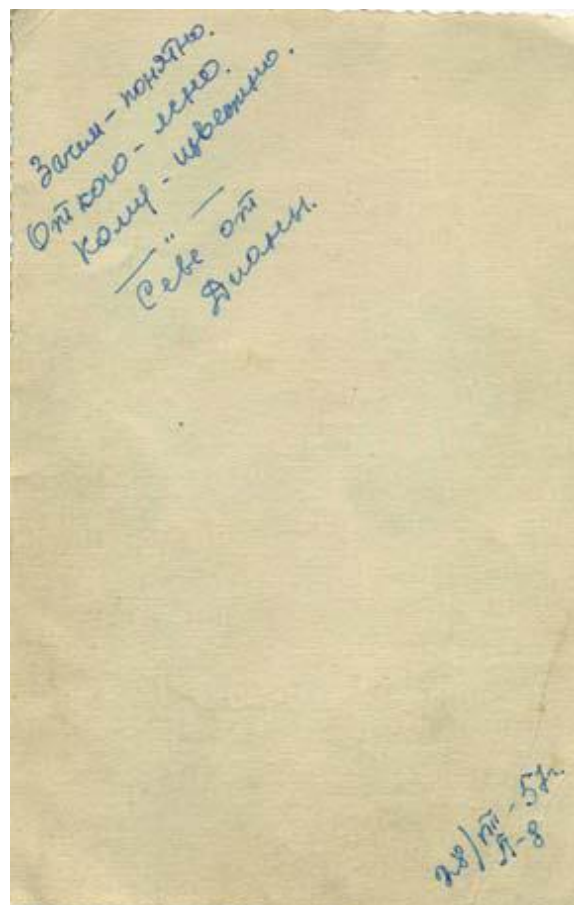 Зачем - понятно.
От кого - ясно.
Кому - известно.
— " —
Севе от
Дианы.
28/VIII - 57г.
Л-8